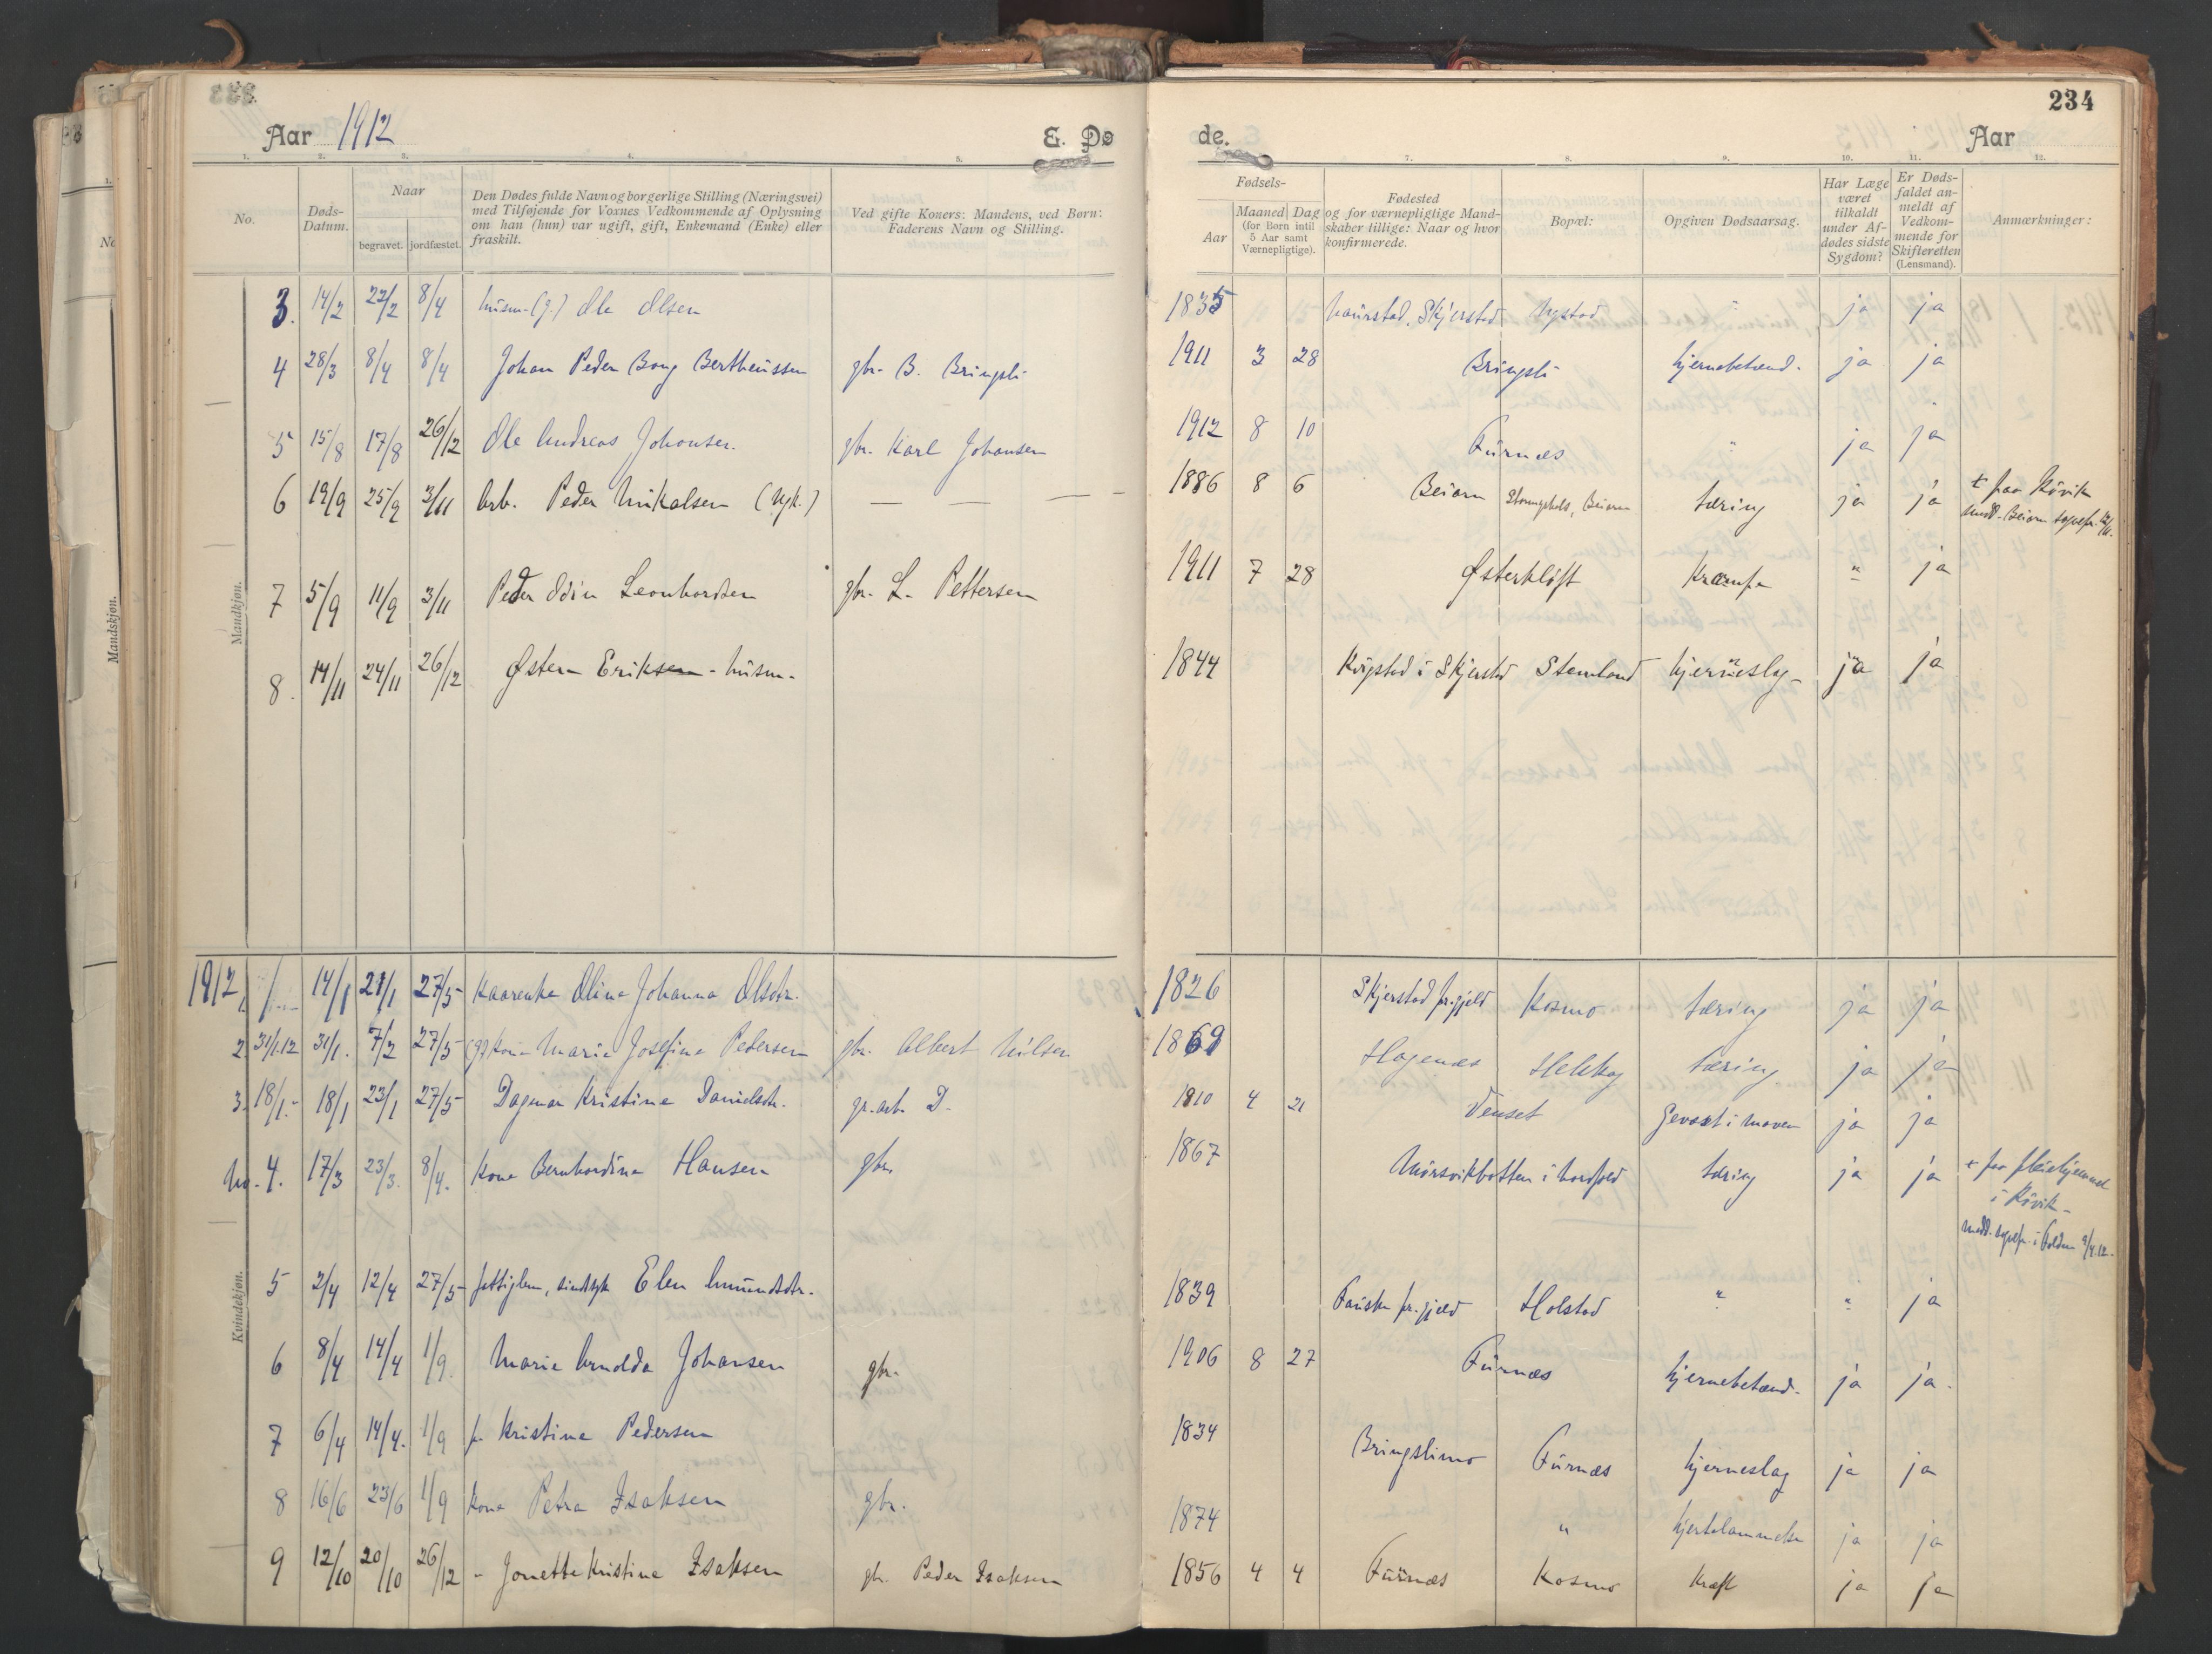 234
Aar 1912
E. Dø
de.
Aar
1. 2. 3. 4. 5. 7. 8. 9. 10. 11. 12.
No.
Døds-
Datum.
Naar
begravet. jordfæstet.
Den Dødes fulde Navn og borgerlige Stilling (Næringsvei)
med Tilføjende for Voxnes Vedkommende af Oplysning
om han (hun) var ugift, gift, Enkemand (Enke) eller
fraskilt.
Ved gifte Koners: Mandens, ved Børn:
Faderens Navn og Stilling.
Fødsels-
Aar
Maaned Dag
(for Børn intil
5 Aar samt
Værnepligtige).
Fødested
og for værnepligtige Mand-
skaber tillige: Naar og hvor
konfirmerede.
Bopæl:
Opgiven Dødsaarsag.
Har Læge
været
tilkaldt
under Af-
dødes sidste
Sygdom?
Er Døds-
faldet an-
meldt af
Vedkom-
mende for
Skifteretten
(Lensmand).
Anmærkninger:
Mandkjøn.
3. 14/2 22/2 8/4 husm. (g.) Ole Olsen 1835 Skjerstad " ja ja
4 28/3 8/4 8/4 Johan Peder Bertheussen gbr. B. Bringsli 1911 3 28 Bringsli hjernebetænd. ja ja
5 15/8 17/8 26/12 Ole Andreas Johansen. gbr. Karl Johansen 1912 8 10 Furnes " ja ja
6 19/9 25/9 3/11 Arb. Peder Mikalsen (Ugk.) — — — 1886 8 6 Beiarn Beiarn tæring ja ja
+ paa Røvik
medd. Beiarn sogepr.
7 5/9 11/9 3/11 Peder Odin Leonhardsen gbr. L. Pettersen 1911 7 28 Østerkløft Krampe " ja
8. 14/11 24/11 26/12 Østen Eriksen - husm. 1844 i Skjerstd Stemland hjerneslag ja ja
Kvindekjøn.
1912, 1. 14/1 21/1 27/5 Kaarenke Oline Johanna Olsdtr. 1826 Skjerstad pr.gjeld Kosmo tæring ja ja
2 31/1.12 31/1. 7/2 27/5 (g) Kone Marie Josefine Pedersen gbr. Albert Nilsen 1869 Hagenæs tæring ja ja
3. 18/1.- 18/1 23/1 27/5 Dagmar Kristine Danielsdtr. gr.arb. D. 1910 4 21 Venset Gevæxt i maven ja ja
No. 4. 17/3 23/3. 8/4. Kone Bernhardine Hansen gbr. 1867 Mørsvikbotten i Nordfold tæring ja ja
+ paa pleiehjemmet
i Røvik -
medd. sogepr. i Folden 9/4.12.
5 2/4 12/4 27/5 fattiglem, sindssyk Elen Amundsdtr. 1839 Fauske pr.gjeld Holstad " " ja
6 8/4 14/4 1/9. Marie Arnolda Johansen gbr. 1906 8 27 Furnes hjernebetænd. ja ja.
7 6/4 14/4. 1/9 Kristine Pedersen 1834 Bringslimo Furnes hjerneslag ja ja
8 16/6 23/6 1/9 Kone Petra Isaksen gbr. 1874 " hjertelammelse ja ja
9 12/10 20/10 26/12 - Jonette Kristine Isaksen gbr. Peder Isaksen 1856 4 4 Furnæs Kosmo Kræft ja ja
Mandskjøn.